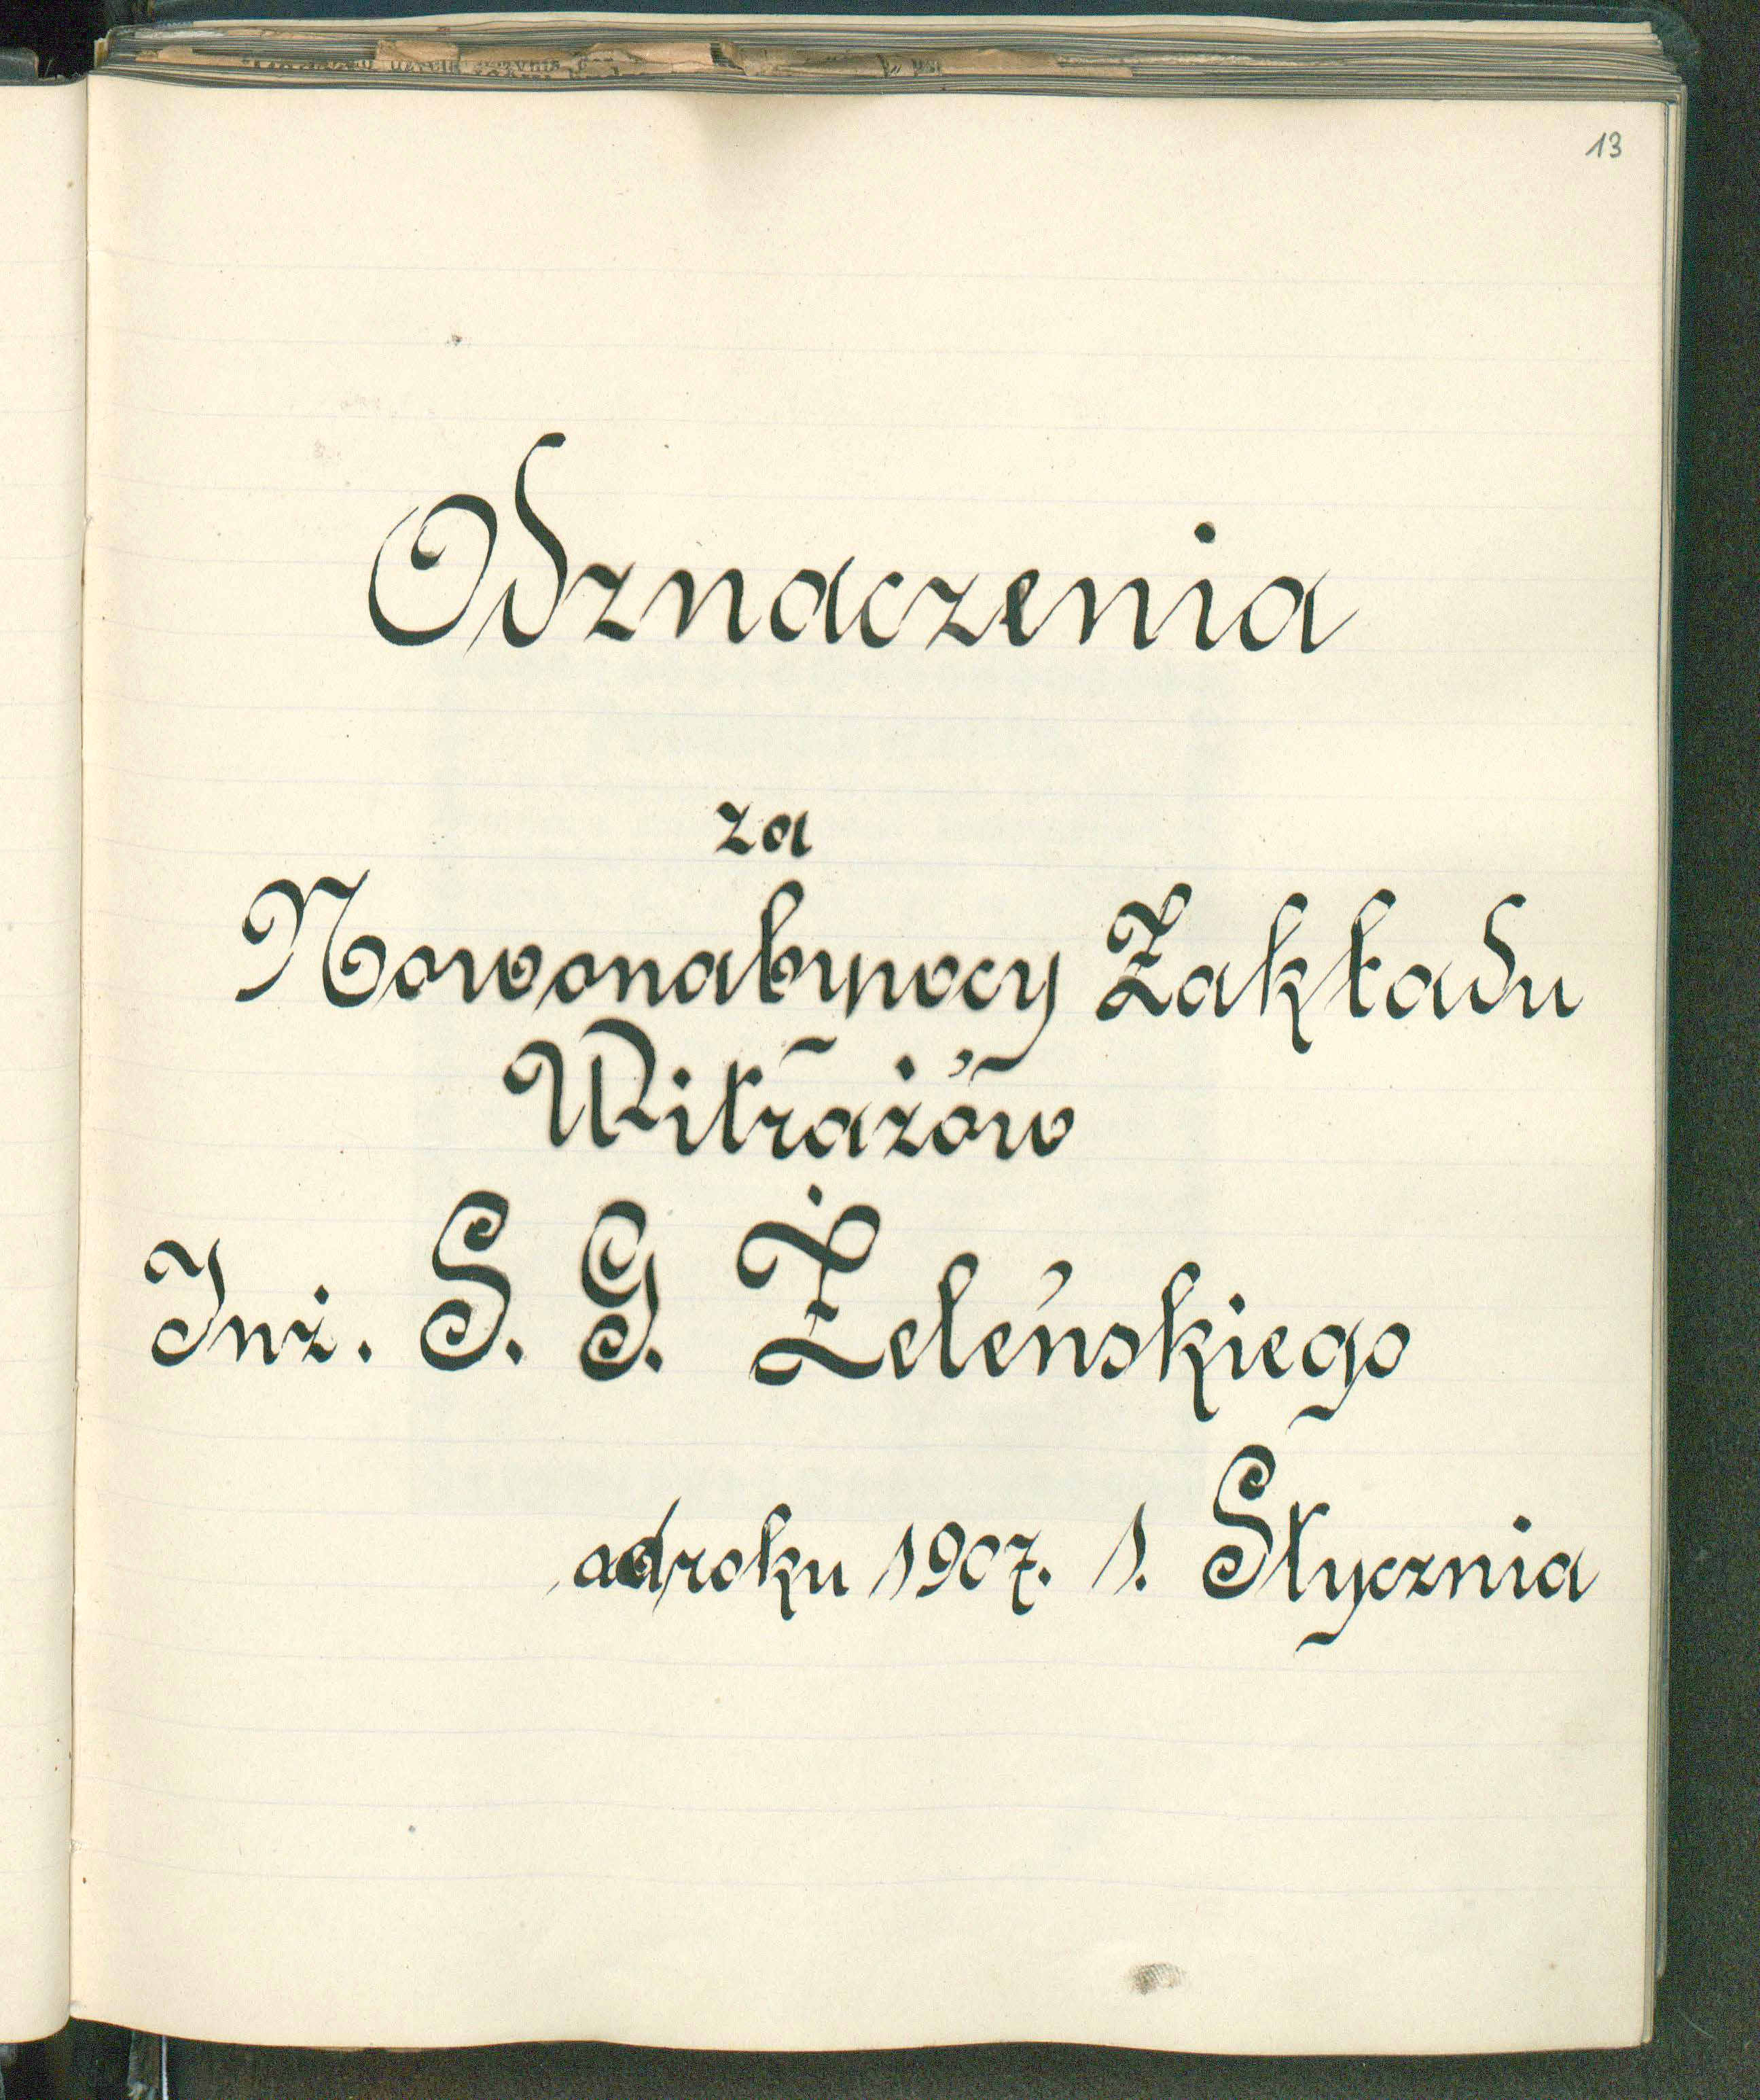 13
Odznaczenia
za
Nowonabywcy Zakładu
Witrażów
Inż. S. G. Żeleńskiego
od roku 1907. 1. Stycznia